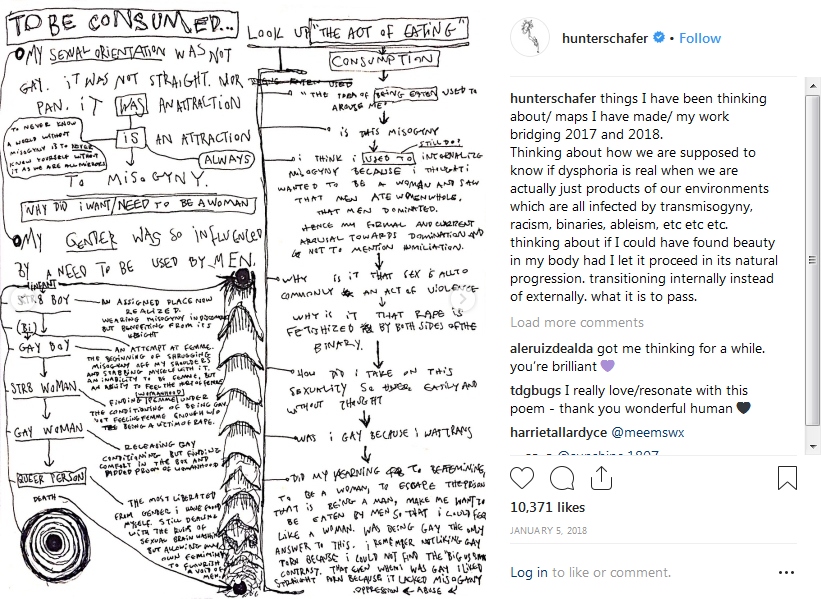 TO BE CONSUMED...
MY SEXUAL ORIENTATION WAS NOT
GAY. IT WAS NOT STRAIGHT. NOR
PAN. IT WAS AN ATTRACTION
IS AN ATTRACTION
ALWAYS
TO MISOGYNY.
TO NEVER KNOW
A WORLD WITHOUT
MISOGYNY IS TO NEVER
KNOW YOURSELF WITHOUT
IT AS WE ARE ALL MIRRORS
WHY DID I WANT/NEED TO BE A WOMAN
MY GENDER WAS SO INFLUENCED
BY A NEED TO BE USED BY MEN.
INFANT
STR8 BOY
(Bi)
GAY BOY
STR8 WOMAN
GAY WOMAN
QUEER PERSON
DEATH
AN ASSIGNED PLACE NOW
REALIZED.
WEARING MISOGYNY IN
BUT BENEFITTING FROM ITS
WEIGHT
AN ATTEMPT AT FEMME.
THE BEGINNING OF SHRUGGING
MISOGYNY OFF MY SHOULDERS
AND STABBING MYSELF WITH IT.
AN INABILITY TO BE FEMME, BUT
AN ABILITY TO FEEL THE
WOMANHOOD
FINDING FEMME UNDER
THE CONDITIONING OF BEING GAY.
NOT FEELING FEMME ENOUGH W/O
BEING A VICTIM OF RAPE.
RELEASING GAY
CONDITIONING BUT FINDING
COMFORT IN THE BOX AND
PROOF OF WOMANHOOD
THE MOST LIBERATED
FROM GENDER I HAVE FOUND
MYSELF. STILL DEALING
WITH THE RUINS OF
SEXUAL BRAIN WASHING
BUT ALLOWING
OWN FEMININITY
TO FLOURISH
A VOID OF
MEN.
LOOK UP "THE ACT OF EATING"
CONSUMPTION
"THE IDEA OF BEING EATEN USED TO
AROUSE ME"
IS THIS MISOGYNY
STILL DO?
I THINK I USED TO INTERNALIZE
MISOGYNY BECAUSE I THOUGHT I
WANTED TO BE A WOMAN AND SAW
THAT MEN ATE WOMEN WHOLE,
THAT MEN DOMINATED.
HENCE MY FORMAL AND CURRENT
AROUSAL TOWARDS DOMINATION AND
NOT TO MENTION HUMILIATION.
WHY IS IT THAT SEX IS ALL TO
COMMONLY AN ACT OF VIOLENCE
WHY IS IT THAT RAPE IS
FETISHIZED BY BOTH SIDES OF THE
BINARY.
HOW DID I TAKE ON THIS
SEXUALITY SO EASILY AND
WITHOUT THOUGHT
WAS I GAY BECAUSE I WAS TRANS
DID MY YEARNING TO BE FEMININE,
TO BE A WOMAN, TO ESCAPE THE PRISON
THAT IS BEING A MAN, MAKE ME WANT TO
BE EATEN BY MEN SO THAT I COULD FEEL
LIKE A WOMAN. WAS BEING GAY THE ONLY
ANSWER TO THIS. I REMEMBER NOT LIKING GAY
PORN BECAUSE I COULD NOT FIND THE "BIG VS SMALL"
CONTRAST. THAT EVEN WHEN I WAS GAY I LIKED
STRAIGHT PORN BECAUSE IT LACKED MISOGYNY
OPPRESSION ABUSE
hunterschafer • Follow
hunterschafer things I have been thinking
about/ maps I have made/ my work
bridging 2017 and 2018.
Thinking about how we are supposed to
know if dysphoria is real when we are
actually just products of our environments
which are all infected by transmisogyny,
racism, binaries, ableism, etc etc etc.
thinking about if I could have found beauty
in my body had I let it proceed in its natural
progression. transitioning internally instead
of externally. what it is to pass.
Load more comments
aleruizdealda got me thinking for a while.
you're brilliant 💜
tdgbugs I really love/resonate with this
poem - thank you wonderful human 🖤
harrietallardyce @meemswx
10,371 likes
JANUARY 5, 2018
Log in to like or comment.